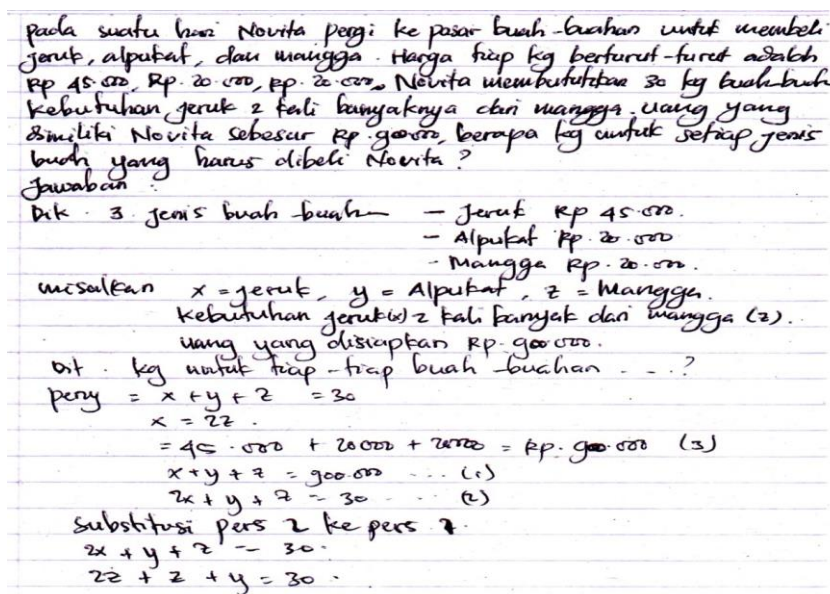 pada suatu hari Novita pergi ke pasar buah-buahan untuk membeli
jeruk, alpukat, dan mangga. Harga tiap kg berturut-turut adalah
Rp 45.000, Rp. 20.000, Rp. 20.000, Novita membutuhkan 30 kg buah-buah
kebutuhan jeruk 2 kali banyaknya dari mangga. uang yang
dimiliki Novita sebesar Rp. 900.000, berapa kg untuk setiap jenis
buah yang harus dibeli Novita?
Jawaban :
Dik . 3 jenis buah-buah — Jeruk Rp 45.000.
- Alpukat Rp. 20.000
- Mangga Rp. 20.000.
misalkan x = jeruk, y = Alpukat, z = Mangga.
Kebutuhan jeruk (x) 2 kali banyak dari mangga (z).
uang yang disiapkan Rp. 900.000.
Dit . kg untuk tiap-tiap buah-buahan . . . ?
peny = x + y + z = 30
x = 2z .
= 45.000 + 20000 + 20000 = Rp. 900.000 (3)
x + y + z = 900.000 ... (1)
2x + y + z = 30 . . . (2)
Substitusi pers 2 ke pers
2x + y + z = 30.
2z + z + y = 30 .